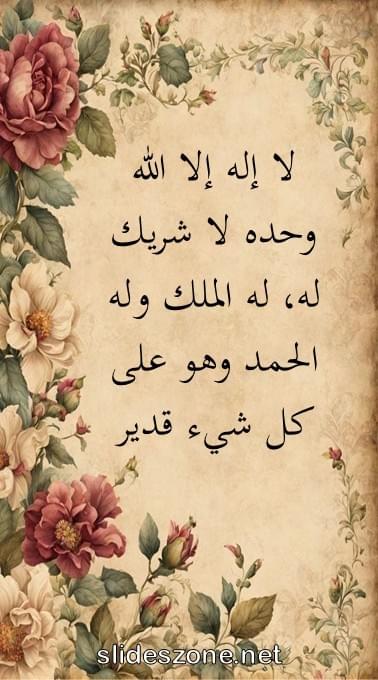 لا إله إلا الله
وحده لا شريك
له، له الملك وله
الحمد وهو على
كل شيء قدير
slideszone.net